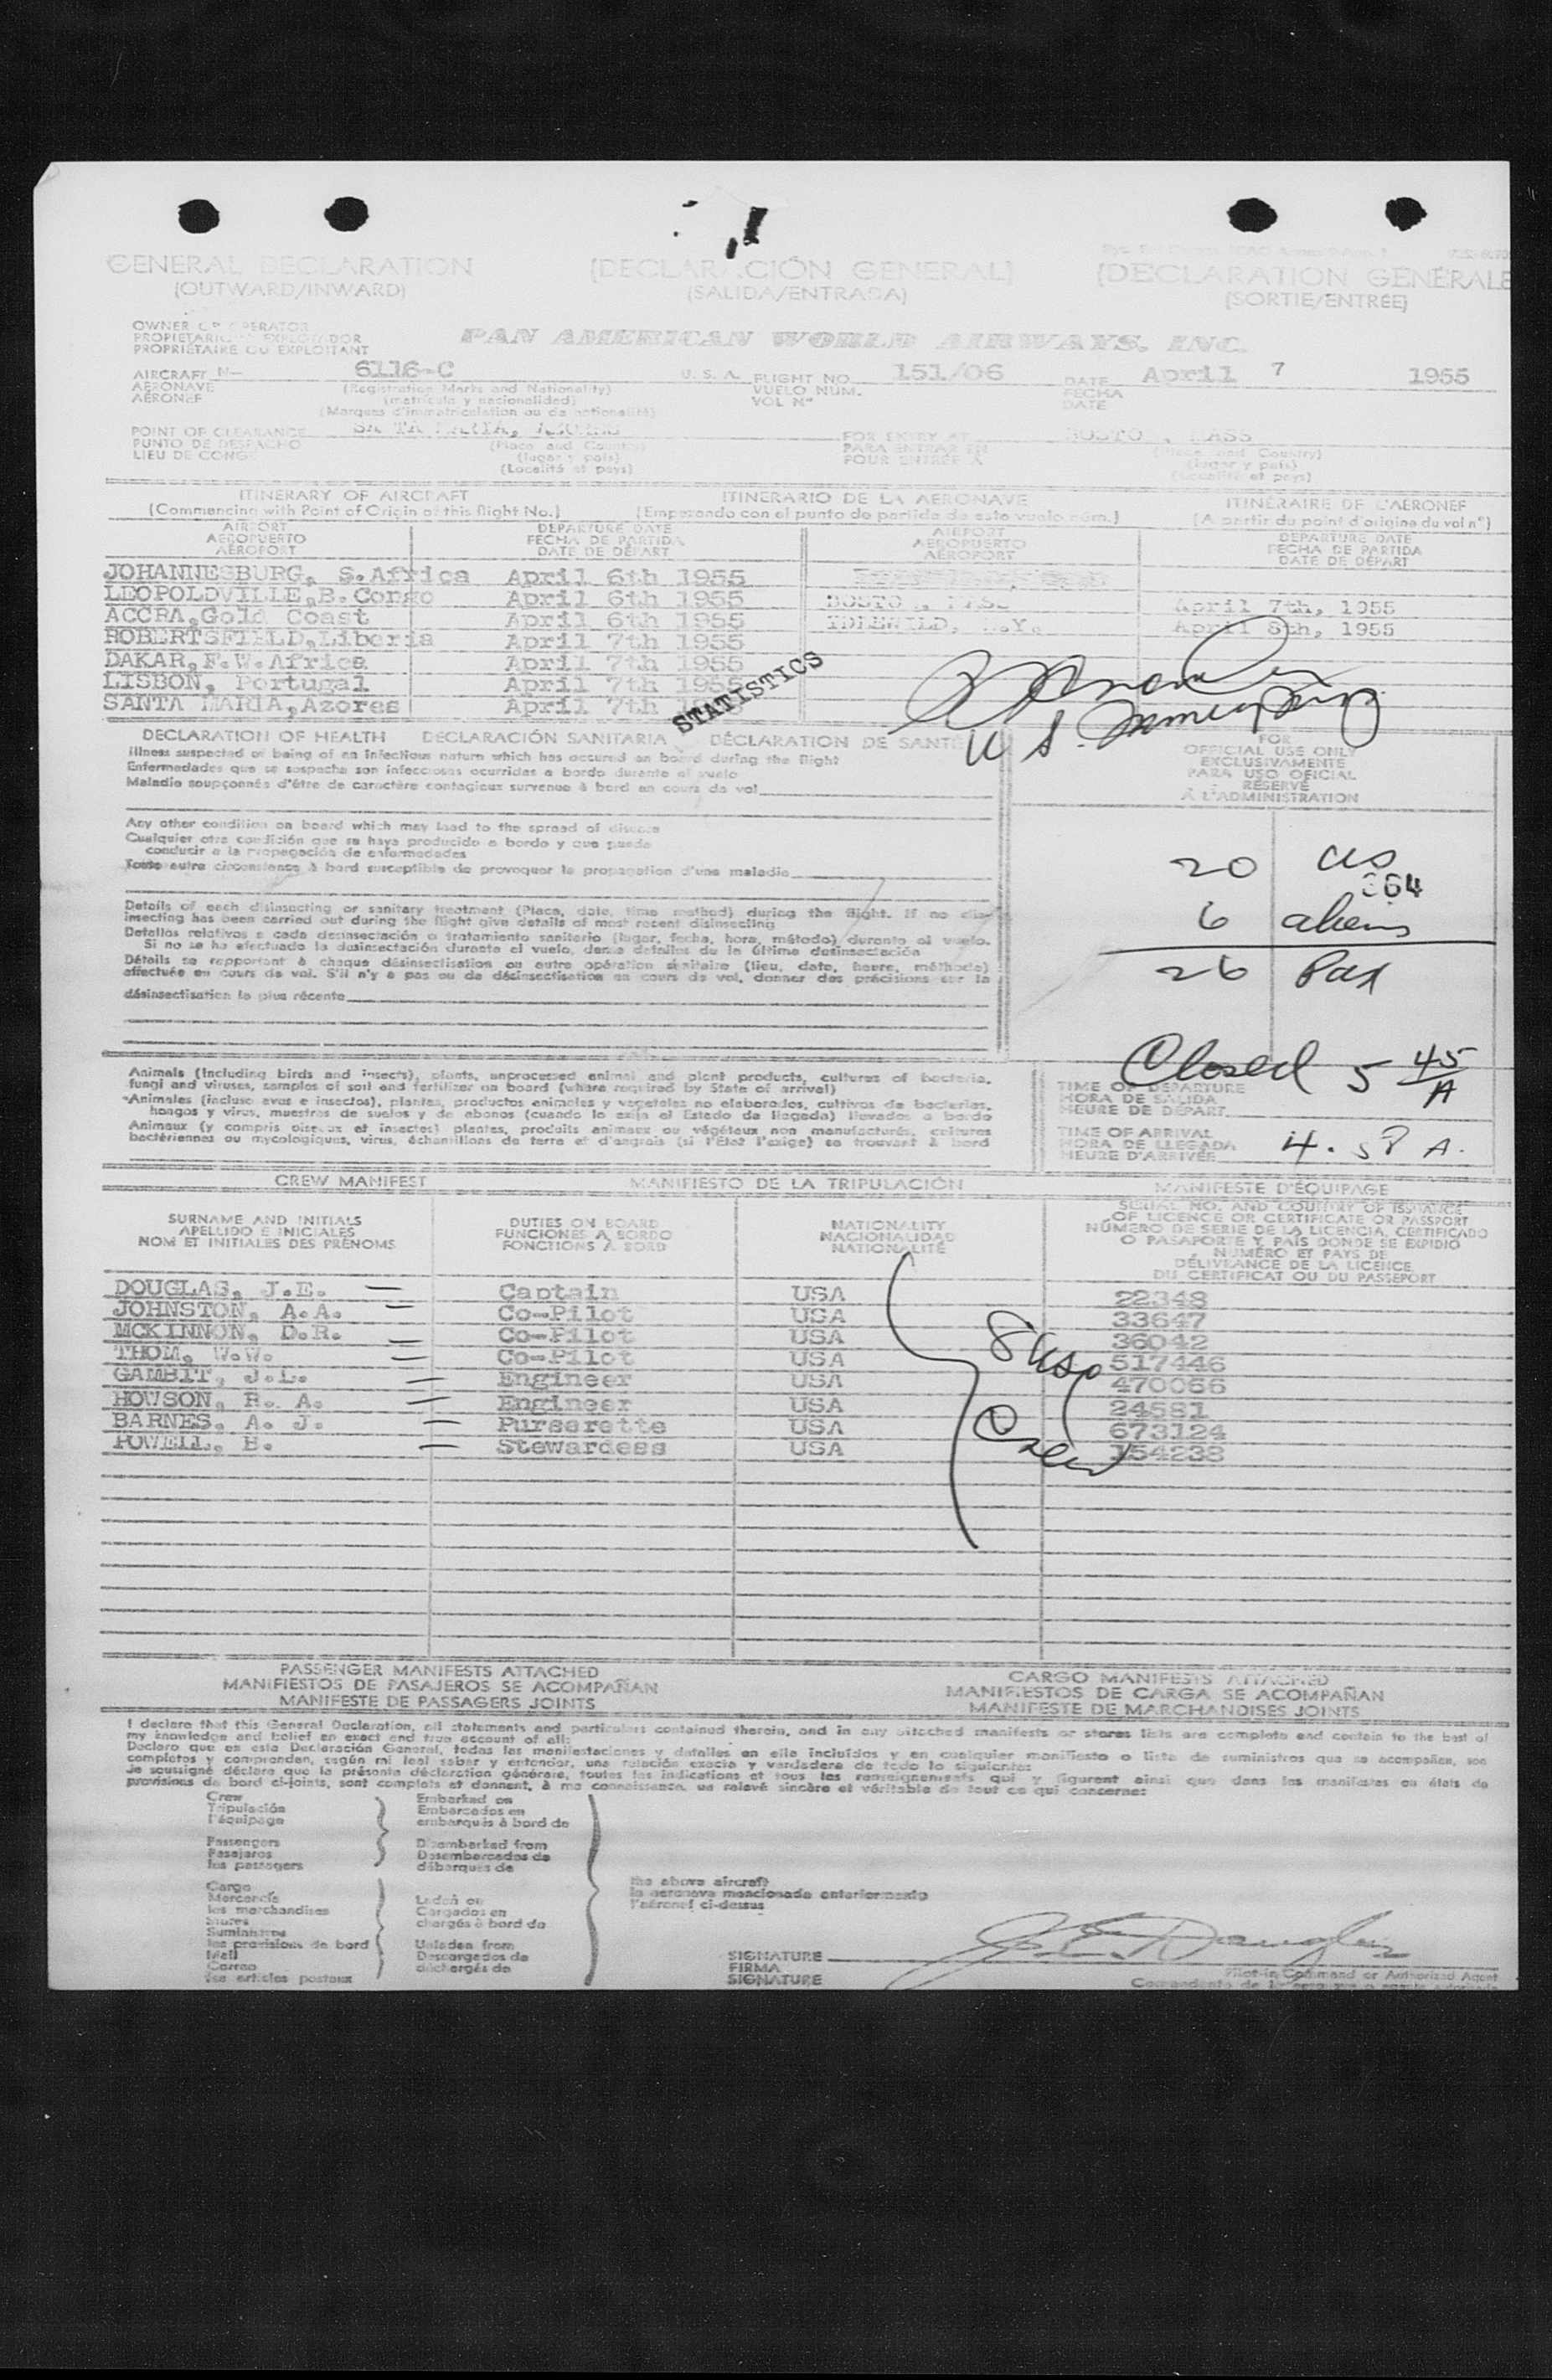 GENERAL DECLARATION
(OUTWARD/INWARD)
(DECLARACIÓN GENERAL)
(SALIDA/ENTRADA)
(DECLARATION GÉNÉRALE
(SORTIE/ENTRÉE)
OWNER OR OPERATOR
PROPIETARIO O EXPLOTADOR
PROPRIÉTAIRE OU EXPLOITANT
PAN AMERICAN WORLD AIRWAYS, INC.
AIRCRAFT N— 6116-C U. S. A. FLIGHT NO. 151/06 DATE April 7 1955
AERONAVE (Registration Marks and Nationality) VUELO NUM. FECHA
AÉRONEF (matrícula y nacionalidad) VOL Nº DATE
(Marques d'immatriculation ou de nationalité)
POINT OF CLEARANCE SANTA MARIA, AZORES FOR ENTRY AT BOSTON, MASS
PUNTO DE DESPACHO (Place and Country) PARA ENTRAR EN (Place and Country)
LIEU DE CONGÉ (lugar y país) POUR ENTRÉE À (lugar y país)
(Localité et pays) (Localité et pays)
ITINERARY OF AIRCRAFT ITINERARIO DE LA AERONAVE ITINÉRAIRE DE L'AÉRONEF
(Commencing with Point of Origin of this flight No.) (Empezando con el punto de partida de este vuelo núm.) (A partir du point d'origine du vol nº)
AIRPORT DEPARTURE DATE AIRPORT DEPARTURE DATE
AEROPUERTO FECHA DE PARTIDA AEROPUERTO FECHA DE PARTIDA
AÉROPORT DATE DE DÉPART AÉROPORT DATE DE DÉPART
JOHANNESBURG, S.Africa April 6th 1955
LEOPOLDVILLE,B.Congo April 6th 1955 BOSTON, MASS April 7th, 1955
ACCRA,Gold Coast April 6th 1955 IDLEWILD, N.Y. April 8th, 1955
ROBERTSFIELD,Liberia April 7th 1955
DAKAR,F.W.Africa April 7th 1955
LISBON, Portugal April 7th 1955
SANTA MARIA,Azores April 7th 1955
STATISTICS
U S.
DECLARATION OF HEALTH DECLARACIÓN SANITARIA DÉCLARATION DE SANTÉ
Illness suspected of being of an infectious nature which has occured on board during the flight
Enfermedades que se sospecha son infecciosas ocurridas a bordo durante el vuelo
Maladie soupçonnés d'être de caractère contagieux survenue à bord en cours de vol
FOR
OFFICIAL USE ONLY
EXCLUSIVAMENTE
PARA USO OFICIAL
RÉSERVÉ
À L'ADMINISTRATION
Any other condition on board which may lead to the spread of disease
Cualquier otra condición que se haya producido a bordo y que puede
conducir a la propagación de enfermedades
Toute autre circonstance à bord susceptible de provoquer la propagation d'une maladie
20 US
364
6 aliens
26 Pax
Details of each disinsecting or sanitary treatment (Place, date, time method) during the flight. If no dis-
insecting has been carried out during the flight give details of most recent disinsecting
Detalles relativos a cada desinsectación o tratamiento sanitario (lugar, fecha, hora, método) durante el vuelo.
Si no se ha efectuado la desinsectación durante el vuelo, dense detalles de la última desinsectación
Détails se rapportant à chaque désinsectisation ou autre opération sanitaire (lieu, date, heure, méthode)
effectuée en cours de vol. S'il n'y a pas eu de désinsectisation en cours de vol, donner des précisions sur la
désinsectisation la plus récente
Animals (Including birds and insects), plants, unprocessed animal and plant products, cultures of bacteria,
fungi and viruses, samples of soil and fertilizer on board (where required by State of arrival)
Animales (incluso aves e insectos), plantas, productos animales y vegetales no elaborados, cultivos de bacterias,
hongos y virus, muestras de suelos y de abonos (cuando lo exija el Estado de llegada) llevados a bordo
Animaux (y compris oiseaux et insectes) plantes, produits animaux ou végétaux non manufacturés, cultures
bactériennes ou mycologiques, virus, échantillons de terre et d'engrais (si l'État l'exige) se trouvant à bord
Closed 5 45/A
TIME OF DEPARTURE
HORA DE SALIDA
HEURE DE DÉPART
TIME OF ARRIVAL
HORA DE LLEGADA
HEURE D'ARRIVÉE
4. 58 A.
CREW MANIFEST MANIFIESTO DE LA TRIPULACIÓN MANIFESTE D'ÉQUIPAGE
SURNAME AND INITIALS
APELLIDO E INICIALES
NOM ET INITIALES DES PRÉNOMS
DUTIES ON BOARD
FUNCIONES A BORDO
FONCTIONS À BORD
NATIONALITY
NACIONALIDAD
NATIONALITÉ
SERIAL NO. AND COUNTRY OF ISSUANCE
OF LICENCE OR CERTIFICATE OR PASSPORT
NÚMERO DE SERIE DE LA LICENCIA, CERTIFICADO
O PASAPORTE Y PAÍS DONDE SE EXPIDIÓ
NUMÉRO ET PAYS DE
DÉLIVRANCE DE LA LICENCE
DU CERTIFICAT OU DU PASSEPORT
DOUGLAS, J.E. — Captain USA 22348
JOHNSTON, A.A. — Co-Pilot USA 33647
MCKINNON, D.R. — Co-Pilot USA 36042
THOM, W.W. — Co-Pilot USA 517446
GAMBIT, J.L. — Engineer USA 470066
HOWSON, R. A. — Engineer USA 24581
BARNES, A. J. — Purserette USA 673124
POWELL, B. — Stewardess USA 154238
8 USC
Crew
PASSENGER MANIFESTS ATTACHED
MANIFIESTOS DE PASAJEROS SE ACOMPAÑAN
MANIFESTE DE PASSAGERS JOINTS
CARGO MANIFESTS ATTACHED
MANIFIESTOS DE CARGA SE ACOMPAÑAN
MANIFESTE DE MARCHANDISES JOINTS
I declare that this General Declaration, all statements and particulars contained therein, and in any attached manifests or stores lists are complete and contain to the best of
my knowledge and belief an exact and true account of all:
Declaro que en esta Declaración General, todas las manifestaciones y detalles en ella incluidos y en cualquier manifiesto o lista de suministros que se acompañen, son
completos y comprenden, según mi leal saber y entender, una relación exacta y verdadera de todo lo siguiente:
Je soussigné déclare que la présente déclaration générale, toutes les indications et tous les renseignements qui y figurent ainsi que dans les manifestes ou états de
provisions de bord ci-joints, sont complets et donnent, à ma connaissance, un relevé sincère et véritable de tout ce qui concerne:
Crew
Tripulación
l'équipage
Passengers
Pasajeros
les passagers
Embarked on
Embarcados en
embarqués à bord de
Disembarked from
Desembarcados de
débarqués de
Cargo
Mercancía
les marchandises
Stores
Suministros
les provisions de bord
Mail
Correo
les articles postaux
Laden on
Cargados en
chargés à bord de
Unladen from
Descargados de
déchargés de
the above aircraft
la aeronave mencionada anteriormente
l'aéronef ci-dessus
SIGNATURE
FIRMA
SIGNATURE
J. E. Douglas
Pilot-in Command or Authorized Agent
Comandante de la aeronave o agente autorizado